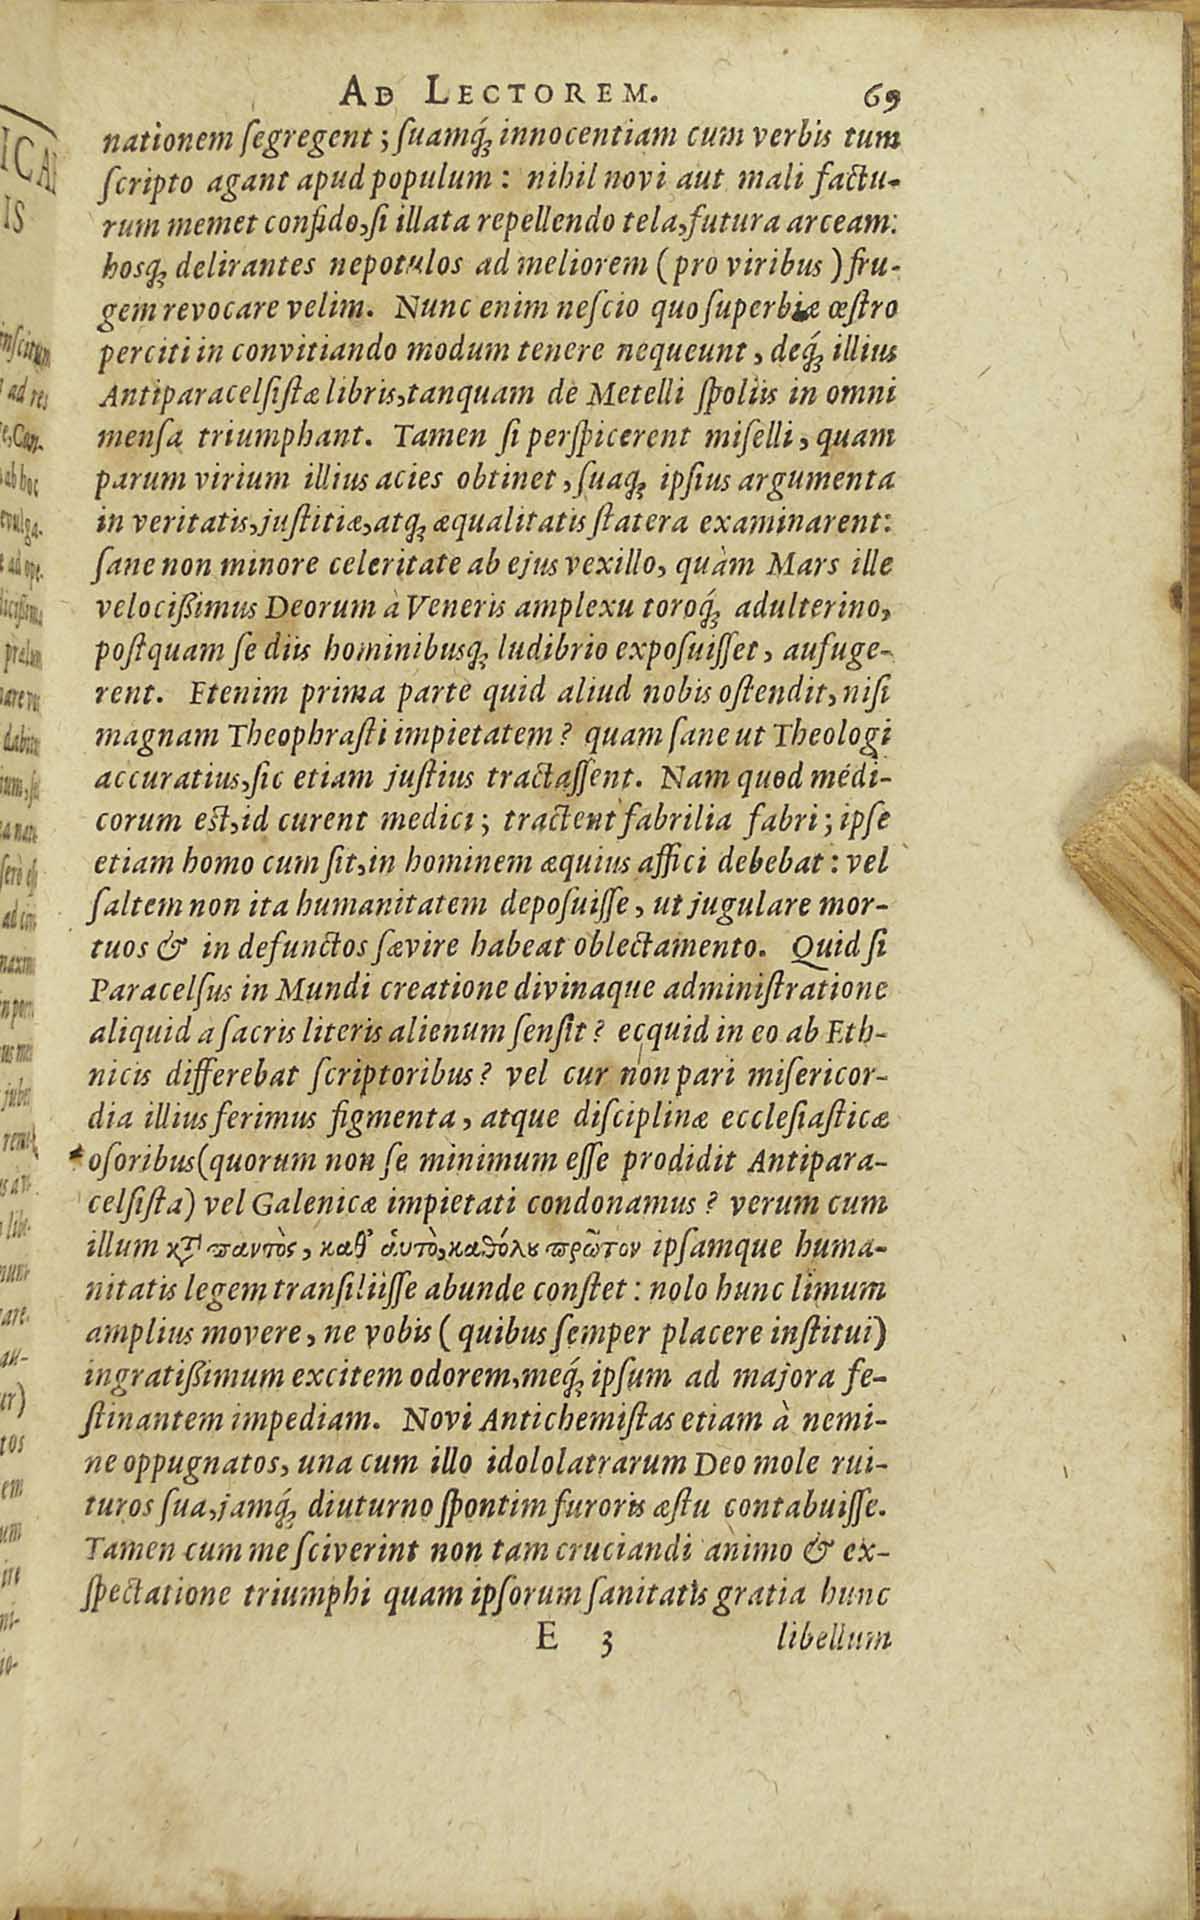 AD LECTOREM. 69
nationem ſegregent; ſuamq́ꝫ innocentiam cum verbis tum
ſcripto agant apud populum: nihil novi aut mali factu-
rum memet confido, ſi illata repellendo tela, futura arceam:
hosqꝫ delirantes nepotulos ad meliorem (pro viribus) fru-
gem revocare velim. Nunc enim neſcio quo ſuperbiæ œſtro
perciti in convitiando modum tenere nequeunt, deq́ꝫ illius
Antiparacelſiſtæ libris, tanquam de Metelli ſpoliis in omni
menſa triumphant. Tamen ſi perſpicerent miſelli, quam
parum virium illius acies obtinet, ſuaqꝫ ipſius argumenta
in veritatis, juſtitiæ, atqꝫ æqualitatis ſtatera examinarent:
ſane non minore celeritate ab ejus vexillo, quàm Mars ille
velocißimus Deorum à Veneris amplexu toroq́ꝫ adulterino,
poſtquam ſe diis hominibusqꝫ ludibrio expoſuiſſet, aufuge-
rent. Etenim prima parte quid aliud nobis oſtendit, niſi
magnam Theophraſti impietatem? quam ſane ut Theologi
accuratius, ſic etiam juſtius tractaſſent. Nam quod médi-
corum est, id curent medici; tractent fabrilia fabri; ipſe
etiam homo cum ſit, in hominem æquius affici debebat: vel
ſaltem non ita humanitatem depoſuiſſe, ut jugulare mor-
tuos & in defunctos ſævire habeat oblectamento. Quid ſi
Paracelſus in Mundi creatione divinaque adminiſtratione
aliquid a ſacris literis alienum ſenſit? ecquid in eo ab Eth-
nicis differebat ſcriptoribus? vel cur non pari miſericor-
dia illius ferimus figmenta, atque diſciplinæ eccleſiaſticæ
oſoribus (quorum non ſe minimum eſſe prodidit Antipara-
celſiſta) vel Galenicæ impietati condonamus? verum cum
illum κϗ ϖαντὸς, καθ᾽ ἁυτὸ, καθόλȣ ϖρῶτον ipſamque huma-
nitatis legem tranſiliiſſe abunde conſtet: nolo hunc limum
amplius movere, ne vobis (quibus ſemper placere inſtitui)
ingratißimum excitem odorem, meq́ꝫ ipſum ad majora fe-
ſtinantem impediam. Novi Antichemiſtas etiam à nemi-
ne oppugnatos, una cum illo idololatrarum Deo mole rui-
turos ſua, jamq́ꝫ diuturno ſpontim furoris æſtu contabuiſſe.
Tamen cum me ſciverint non tam cruciandi animo & ex-
ſpectatione triumphi quam ipſorum ſanitatis gratia hunc
E 3 libellum